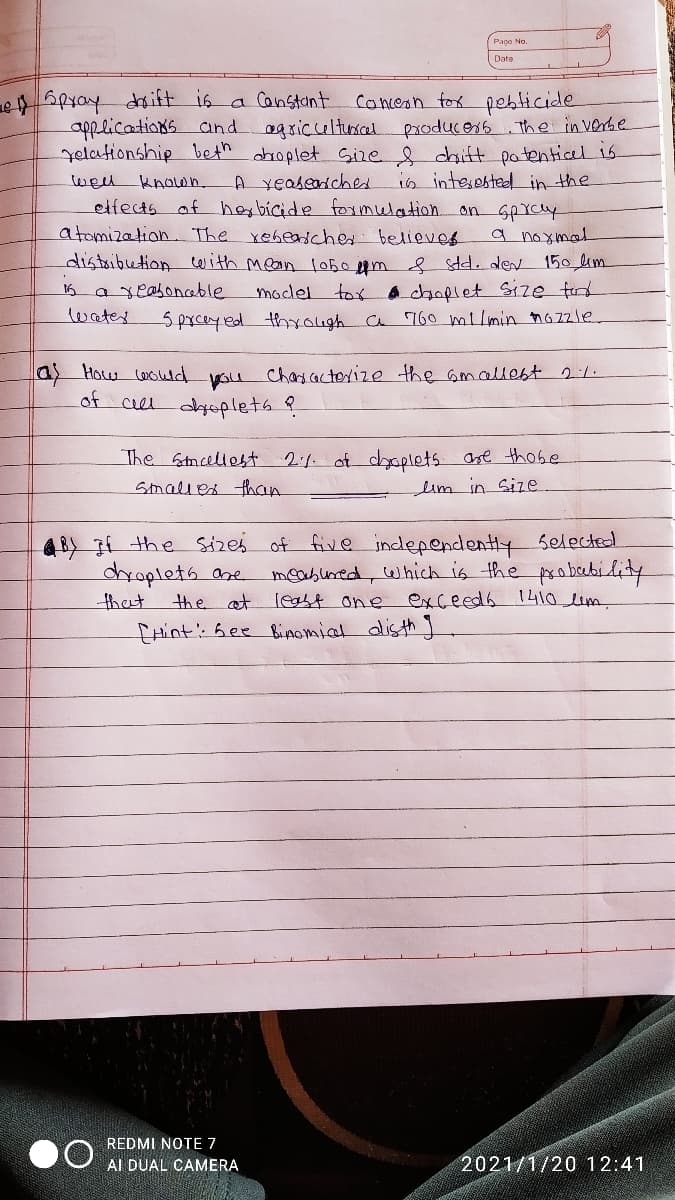 Page No.
Date
Spray drift is a Constant Concern for pesticide
applications and agricultural producers. The inverse
relationship betn droplet size & drift potential is
well known. A reasearcher is interested in the
effects of herbicide formulation on spray
atomization. The researcher believes a normal
distribution with mean 1050 μm & std. dev 150 μm
is a reasonable model for droplet size for
water sprayed through a 760 ml/min nozzle.
a) How would you characterize the smallest 2%
of all droplets ?
The smallest 2% of droplets are those
smaller than ____ μm in size.
B) If the sizes of five independently selected
droplets are measured, which is the probability
that the at least one exceeds 1410 μm.
[Hint: See Binomial distn].
REDMI NOTE 7
AI DUAL CAMERA
2021/1/20 12:41